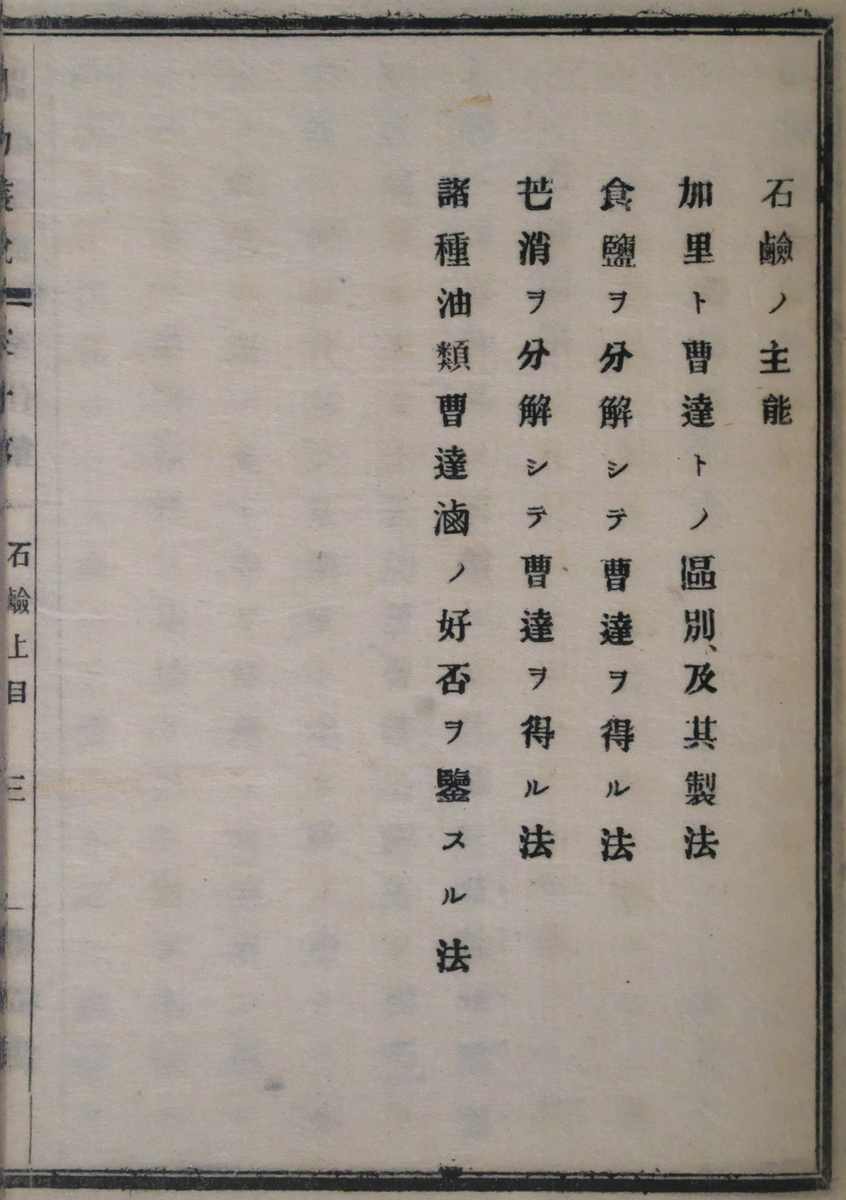 石鹼ノ主能
加里ト曹達トノ區別、及其製法
食鹽ヲ分解シテ曹達ヲ得ル法
芒消ヲ分解シテ曹達ヲ得ル法
諸種油類曹達滷ノ好否ヲ鑒スル法
石鹼上目 三